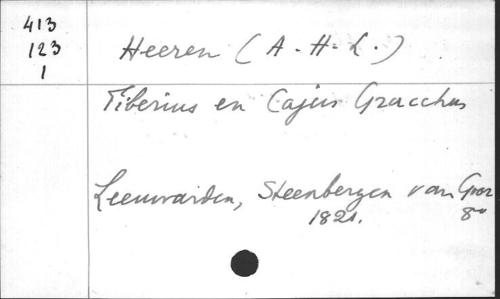 413
123
1
Heeren (A. H. L.)
Tiberius en Cajus Gracchus
Leeuwarden, Steenbergen van Goor
1821.
8°